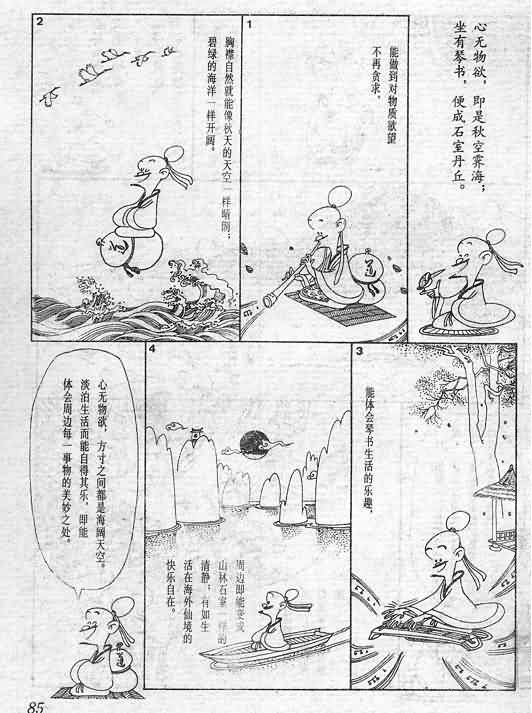 心无物欲，即是秋空霁海；
坐有琴书，便成石室丹丘。
1
能做到对物质欲望
不再贪求，
道
2
胸襟自然就能像秋天的天空一样晴阔；
碧绿的海洋一样开阔。
道
3
能体会琴书生活的乐趣，
4
周边即能变成
山林石室一样的
清静；有如生
活在海外仙境的
快乐自在。
心无物欲，方寸之间都是海阔天空。
淡泊生活而能自得其乐，即能
体会周边每一事物的美妙之处。
道
85